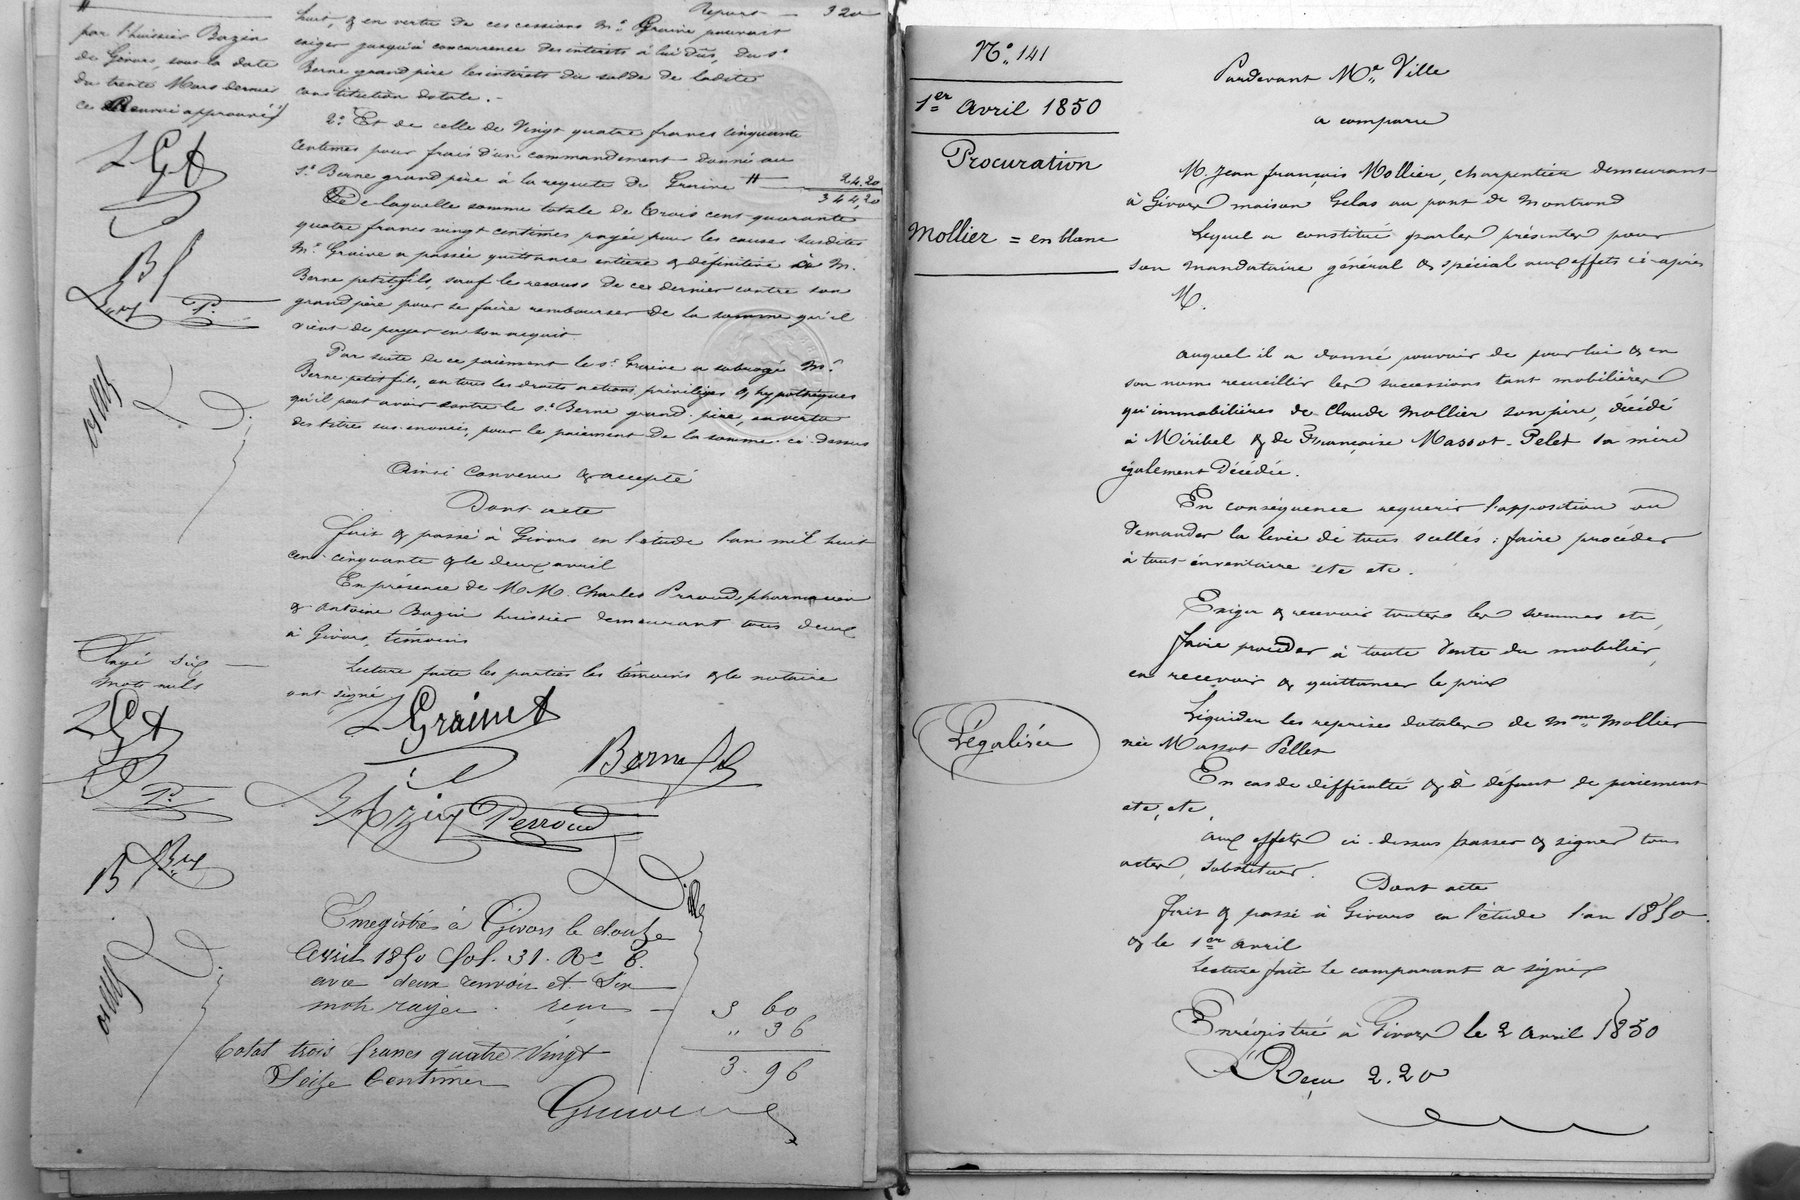 Report — 320
huit, & en vertu de ces cessions Mr. Graine pouvait
exiger jusqu'à concurrence des intérêts à lui dûs, du sr.
Berne grand père les intérêts du solde de ladite
constitution dotale. -
2.° Et de celle de Vingt quatre francs cinquante
centimes pour frais d'un commandement donné au
sr. Berne grand père à la requête de Graine # — 24.20
344,20
De laquelle somme totale de trois cent quarante
quatre francs vingt centimes payés pour les causes susdites
Mr. Graine a passée quittance entière & définitive à M.
Berne petit fils, sauf le recours de ce dernier contre son
grand père pour se faire rembourser de la somme qu'il
vient de payer en son acquit.
Par suite de ce paiement le sr. Graine a subrogé Mr.
Berne petit fils, en tous les droits actions, privilèges & hypothèques
qu'il peut avoir contre le sr. Berne grand père, en vertu
des titres sus-énoncés, pour le paiement de la somme ci-dessus
Ainsi convenu & accepté
Dont acte
fait & passé à Givors en l'étude l'an mil huit
cent cinquante & le deux avril
En présence de M.M. Charles Perroud, pharmacien
& Antoine Bazin huissier demeurant tous deux
à Givors, témoins
Lecture faite les parties les témoins & le notaire
ont signé
#
par l'huissier Bazin
de Givors, sous la date
du trente Mars dernier
ce Renvoi approuvé
Rayé six
mots nuls
Berne
Bazin Perroud
Enregistré à Givors le douze
Avril 1850 fol. 31. Ro 8.
avec deux renvois et six
mots rayés. reçu — 3 60
" 36
Total trois francs quatre vingt 3. 96
Seize Centimes
N.° 141
1er avril 1850
Procuration
Mollier = en blanc
Légalisée
Pardevant Me. Ville
a comparu
M. Jean françois Mollier, charpentier demeurant
à Givors maison Gelas au pont de Montrond
Lequel a constitué par les présentes pour
son mandataire général & spécial aux effets ci-après
M.
auquel il a donné pouvoir de pour lui & en
son nom recueillir les successions tant mobilières
qu'immobilières de Claude Mollier son père, décédé
à Miribel & de Françoise Massot-Pelet sa mère
également décédée.
En conséquence requérir l'apposition ou
demander la levée de tous scellés; faire procéder
à tout inventaire etc etc.
Exiger & recevoir toutes les sommes etc,
faire procéder à toute vente du mobilier,
en recevoir & quittancer le prix
Liquider les reprises dotales de Mme. Mollier
née Massot Pellet
En cas de difficulté & à défaut de paiement
etc, etc,
aux effets ci-dessus passer & signer tous
actes, substituer.
Dont acte
fait & passé à Givors en l'étude l'an 1850
& le 1er avril
Lecture faite le comparant a signé
Enrégistré à Givors le 2 avril 1850
Reçu 2.20